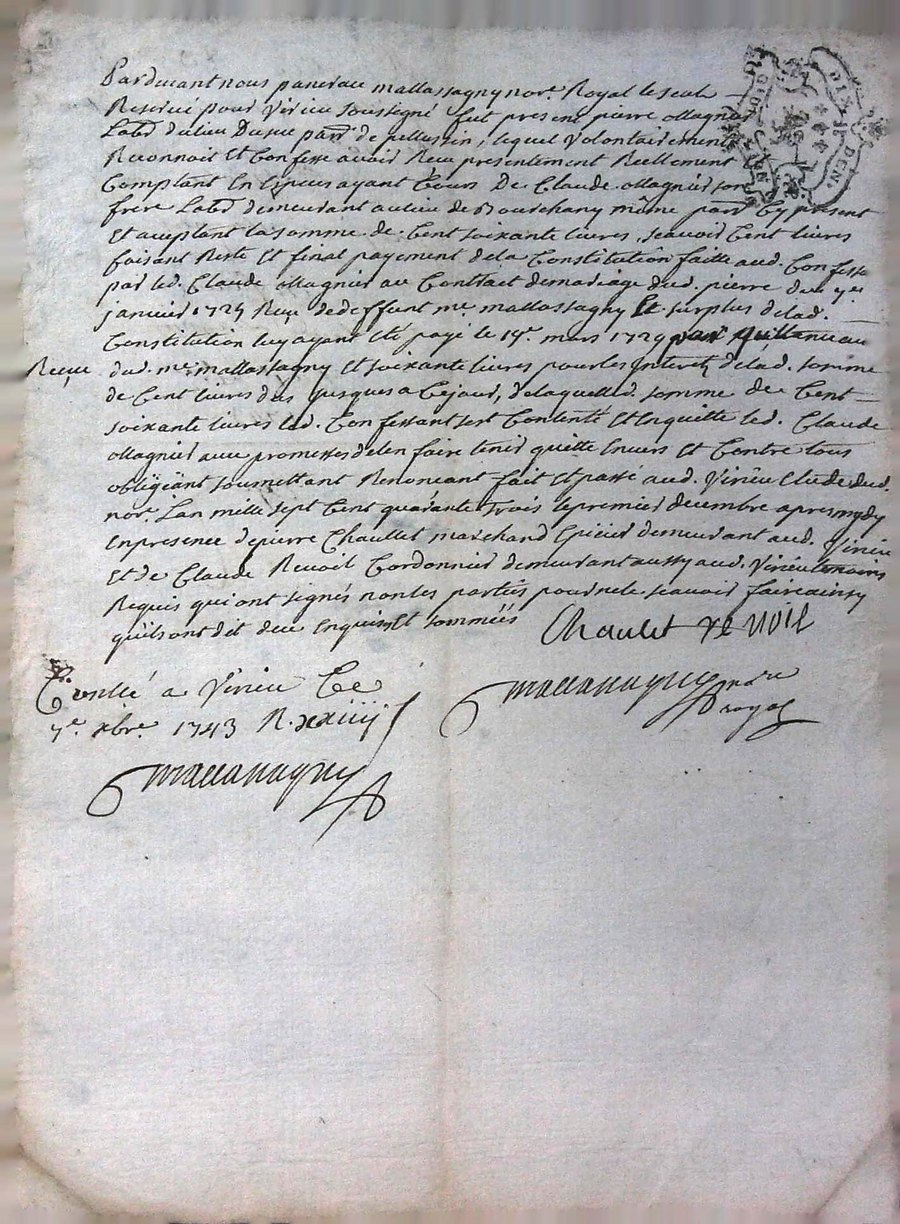 Pardevant nous pancrace mallassagny nore. Royal le seul
Reservé pour Virieu soussigné fut present pierre Magnier
Labr. du lieu Dusue parr. de pellussin, lequel Volontairement
Reconnoit Et Confesse avoir Receu presentement Reellement
Comptant En Especes ayant Cours De Claude Magnier son
frere Labr. demeurant au lieu de Bourchany même parr. Cy present
Et aceptant la somme de Cent soixante livres, scavoir Cent livres
faisant Reste Et final payement de la Constitution faitte aud. Confesst.
par led. Claude Magnier au Contract de mariage dud. pierre du
janvier 1725 Receu de deffunt me. mallassagny Le surplus de lad.
Constitution luy ayant Eté payé le 15e. mars 1729 par quittance
Receue dud. me. mallassagny Et soixante livres pour les Interets de lad. somme
de Cent livres dus jusques a Cejour, de laquelle d. somme de Cent
soixante livres led. Confessant s'est Contenté Et En quitte led. Claude
Magnier avec promesses de l'en faire tenir quitte Envers Et Contre tous
obligeant soumettant Renoncant fait Et passé aud. Virieu Etude dud.
nore. L'an mille sept Cent quarante trois le premier decembre apres mydy
En presence de pierre Chaullet marchand Epicier demeurant aud. Virieu
Et de Claude Renoil Cordonnier demeurant aussy aud. Virieu temoins
Requis qui ont signés non les parties pour ne le scavoir faire ainsy
qu'ils ont dit de ce Enquis Et sommées
Chaulet Renoil
mallassagny nore royal
Controllé a Virieu Le
7e. xbre. 1743 R. xxiiij s
mallassagny
DIX DEN.